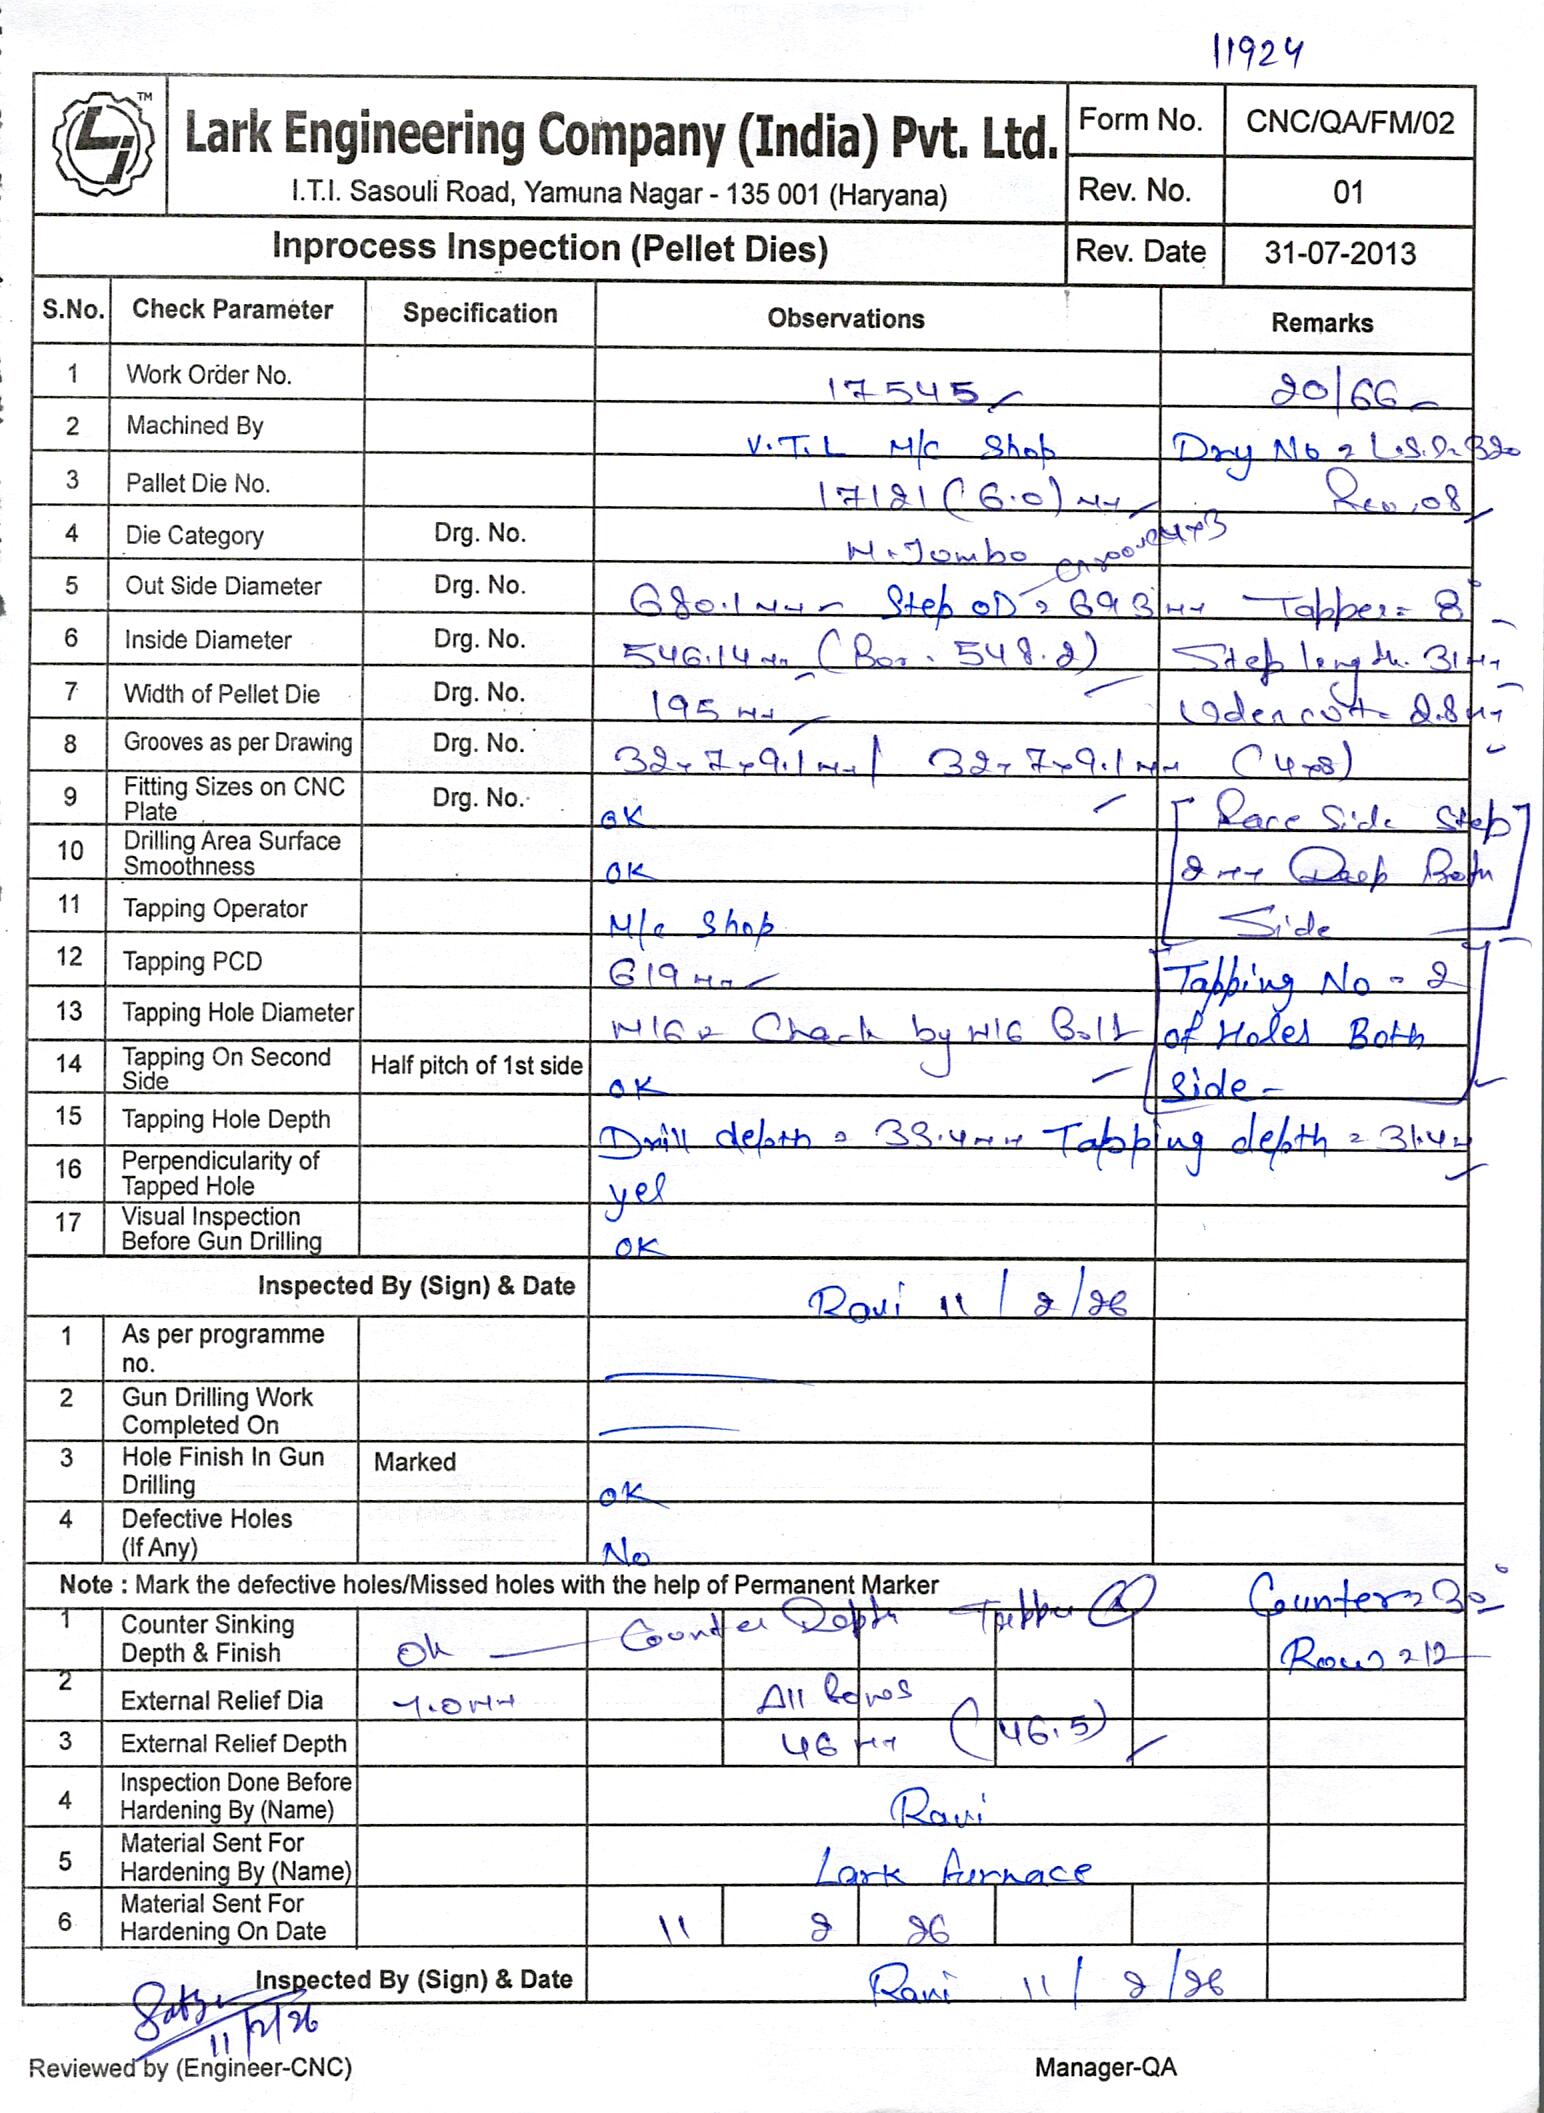 11924
TM
Lark Engineering Company (India) Pvt. Ltd.
I.T.I. Sasouli Road, Yamuna Nagar - 135 001 (Haryana)
Form No. CNC/QA/FM/02
Rev. No. 01
Inprocess Inspection (Pellet Dies)
Rev. Date 31-07-2013
S.No. Check Parameter Specification Observations Remarks
1 Work Order No. 17545 20/66
2 Machined By V.T.L M/C Shop
3 Pallet Die No. 17121 (6.0) Rev. 08
4 Die Category Drg. No. M. Jombo
5 Out Side Diameter Drg. No. 680.1 Step OD = 693 Tapper = 8°
6 Inside Diameter Drg. No. 546.14 (Bor. 548.2) Step length. 31
7 Width of Pellet Die Drg. No. 195 2.8
8 Grooves as per Drawing Drg. No. 32x7x9.1 / 32x7x9.1
9 Fitting Sizes on CNC Plate Drg. No. OK
Side Step
10 Drilling Area Surface Smoothness OK
Deep Both
11 Tapping Operator M/c Shop Side
12 Tapping PCD 619 Tapping No - 2
13 Tapping Hole Diameter M16 Check by M16 Bolt of Holes Both
14 Tapping On Second Side Half pitch of 1st side OK Side -
15 Tapping Hole Depth Drill depth = Tapping depth = 31.4
16 Perpendicularity of Tapped Hole yes
17 Visual Inspection Before Gun Drilling OK
Inspected By (Sign) & Date Ravi 11/2/26
1 As per programme no.
2 Gun Drilling Work Completed On
3 Hole Finish In Gun Drilling Marked OK
4 Defective Holes (If Any) No
Note : Mark the defective holes/Missed holes with the help of Permanent Marker
Counter = 30°
1 Counter Sinking Depth & Finish Ok Counter Depth Tapper
Rows = 12
2 External Relief Dia 7.0 All Rows
3 External Relief Depth 46 (46.5)
4 Inspection Done Before Hardening By (Name) Ravi
5 Material Sent For Hardening By (Name) Lark furnace
6 Material Sent For Hardening On Date 11 2 26
Inspected By (Sign) & Date Ravi 11/2/26
11/2/26
Reviewed by (Engineer-CNC) Manager-QA